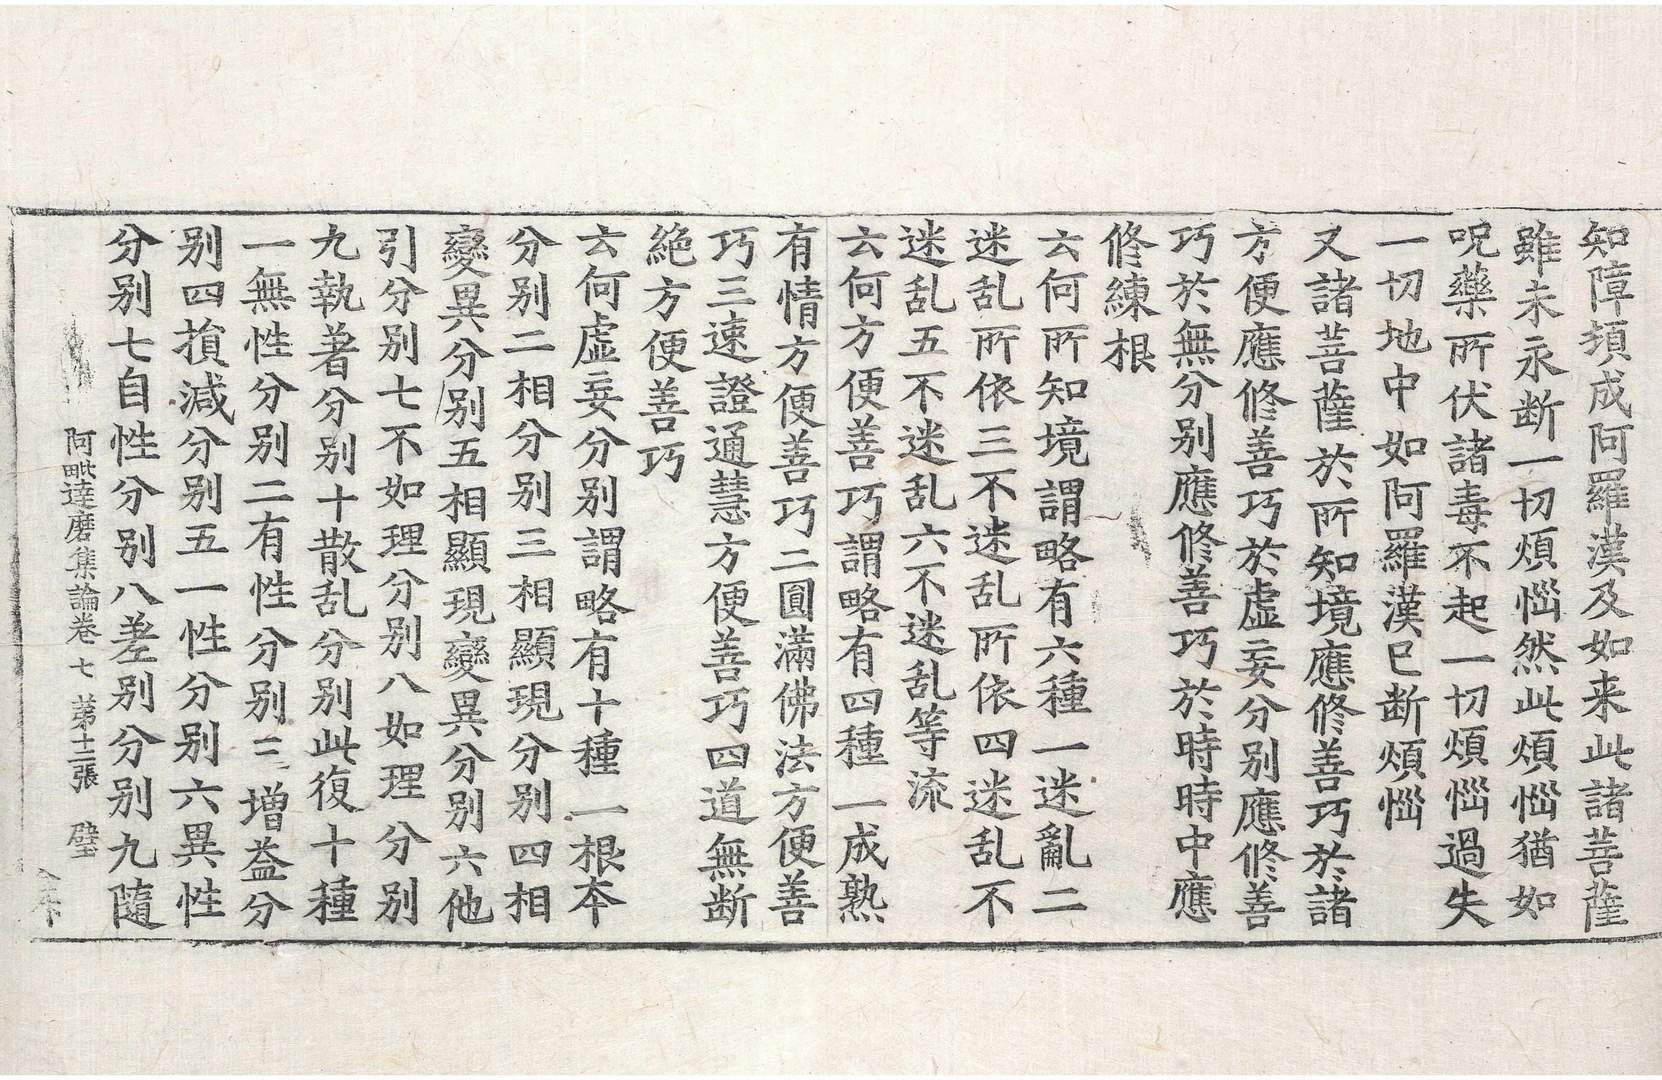 知障頓成阿羅漢及如来此諸菩薩
雖未永断一切煩惱然此煩惱猶如
呪藥所伏諸毒不起一切煩惱過失
一切地中如阿羅漢已断煩惱
又諸菩薩於所知境應修善巧於諸
方便應修善巧於虛妄分別應修善
巧於無分別應修善巧於時時中應
修練根
云何所知境謂略有六種一迷亂二
迷乱所依三不迷乱所依四迷乱不
迷乱五不迷乱六不迷乱等流
云何方便善巧謂略有四種一成熟
有情方便善巧二圓滿佛法方便善
巧三速證通慧方便善巧四道無断
絶方便善巧
云何虛妄分別謂略有十種一根本
分別二相分別三相顯現分別四相
變異分別五相顯現變異分別六他
引分別七不如理分別八如理分別
九執著分別十散乱分別此復十種
一無性分別二有性分別三增益分
別四損減分別五一性分別六異性
分別七自性分別八差別分別九隨
阿毗達磨集論卷七 苐十二張 璧